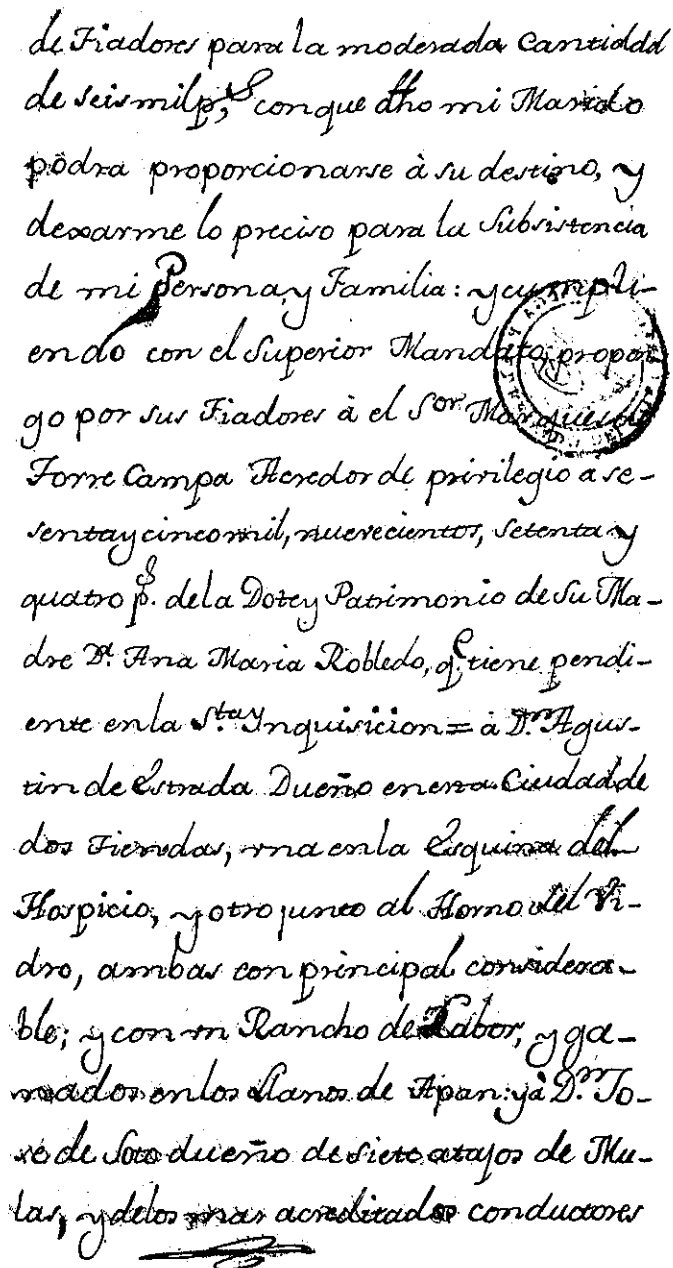 de Fiadores para la moderada Cantidad
de seis mil p,s con que dho mi Marido
pòdra proporcionarse à su destino, y
dexarme lo preciso para la Subsistencia
de mi Persona, y Familia: y cumpli-
endo con el Superior Mandato, propon
go por sus Fiadores à el Sor Marques de
Torre Campa Acredor de privilegio a se-
senta y cinco mil, nuevecientos, setenta y
quatro ps. de la Dote, y Patrimonio de Su Ma-
dre Da. Ana Maria Robledo, qe, tiene pendi-
ente en la Sta Ynquisicion = à Dn. Agus-
tin de Estrada Dueño en esta Ciudad de
dos Tiendas, vna en la Esquina del
Hospicio, y otro junto al Horno del Vi-
dro, ambas con principal considera-
ble; y con vn Rancho de Labor, y ga-
nados en los Llanos de Apan: y à Dn. Jo-
xé de Soto dueño de siete atajos de Mu-
las, y delos mas acreditados conductores